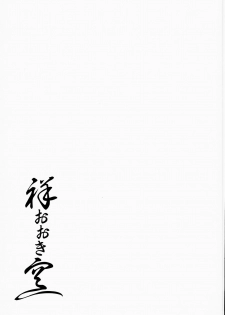 祥おおき空